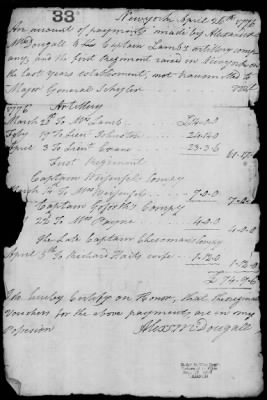 33
Newyork April 26th 1776
An amount of payments made by Alexander
McDougall to the Captain Lambs artillery comp
any, and the first Regiment raised in Newyork on
the last years establishment, not transmitted to
Major General Schuyler
1776 Artillery
March 2d To Mrs Lamb £14.0.0
Feby 19 To Lieut Johnston 24.14.0
April 3 To Lieut Evans 23.3.6
61.17.6
First Regiment
Captain Weisenfels Compy
March 14 To Mrs Weisenfels 7.0.0
7.0.0
Captain Goforth's Compy
22 To Mrs Payne 4.0.0
4.0.0
The Late Captain Cheesmans Compy
April 3th To Richard Waits wife 1.12.0
1.12.0
£ 74.9.6
I do hereby Certify on Honor, that the
Vouchers for the above payments, are in my
Possession
Alexr McDougall